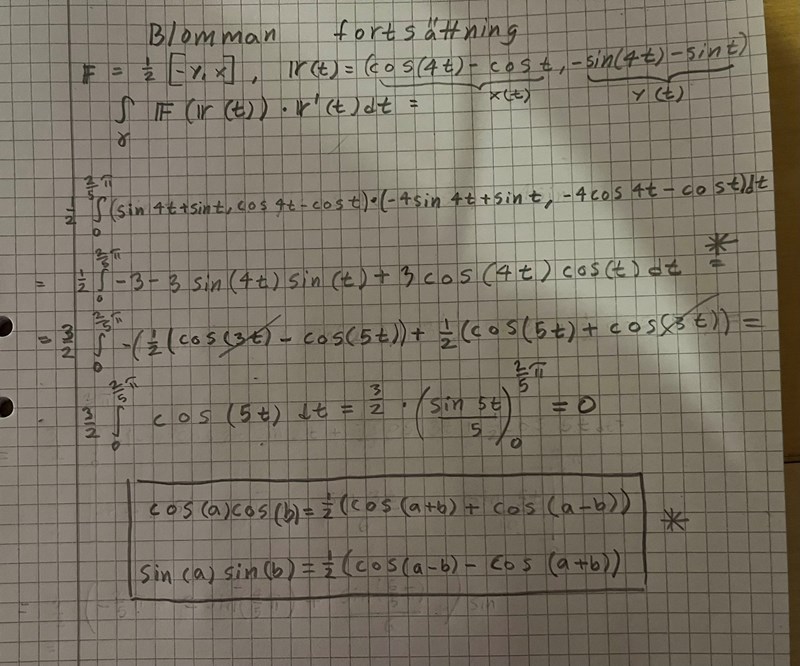 Blomman fortsättning
𝔽 = 1/2 [-y, x], 𝕣(t) = (cos(4t) - cos t, -sin(4t) - sin t)
x(t) y(t)
∫_γ 𝔽(𝕣(t)) · 𝕣'(t) dt =
1/2 ∫_0^{2/5 π} (sin 4t + sin t, cos 4t - cos t) • (-4 sin 4t + sin t, -4 cos 4t - cos t) dt
= 1/2 ∫_0^{2/5 π} -3 - 3 sin(4t) sin(t) + 3 cos(4t) cos(t) dt =*
= 3/2 ∫_0^{2/5 π} -(1/2 (cos(3t) - cos(5t)) + 1/2 (cos(5t) + cos(3t)) =
3/2 ∫_0^{2/5 π} cos(5t) dt = 3/2 · (sin 5t / 5)_0^{2/5 π} = 0
cos(a)cos(b) = 1/2 (cos(a+b) + cos(a-b))
*
sin(a) sin(b) = 1/2 (cos(a-b) - cos(a+b))